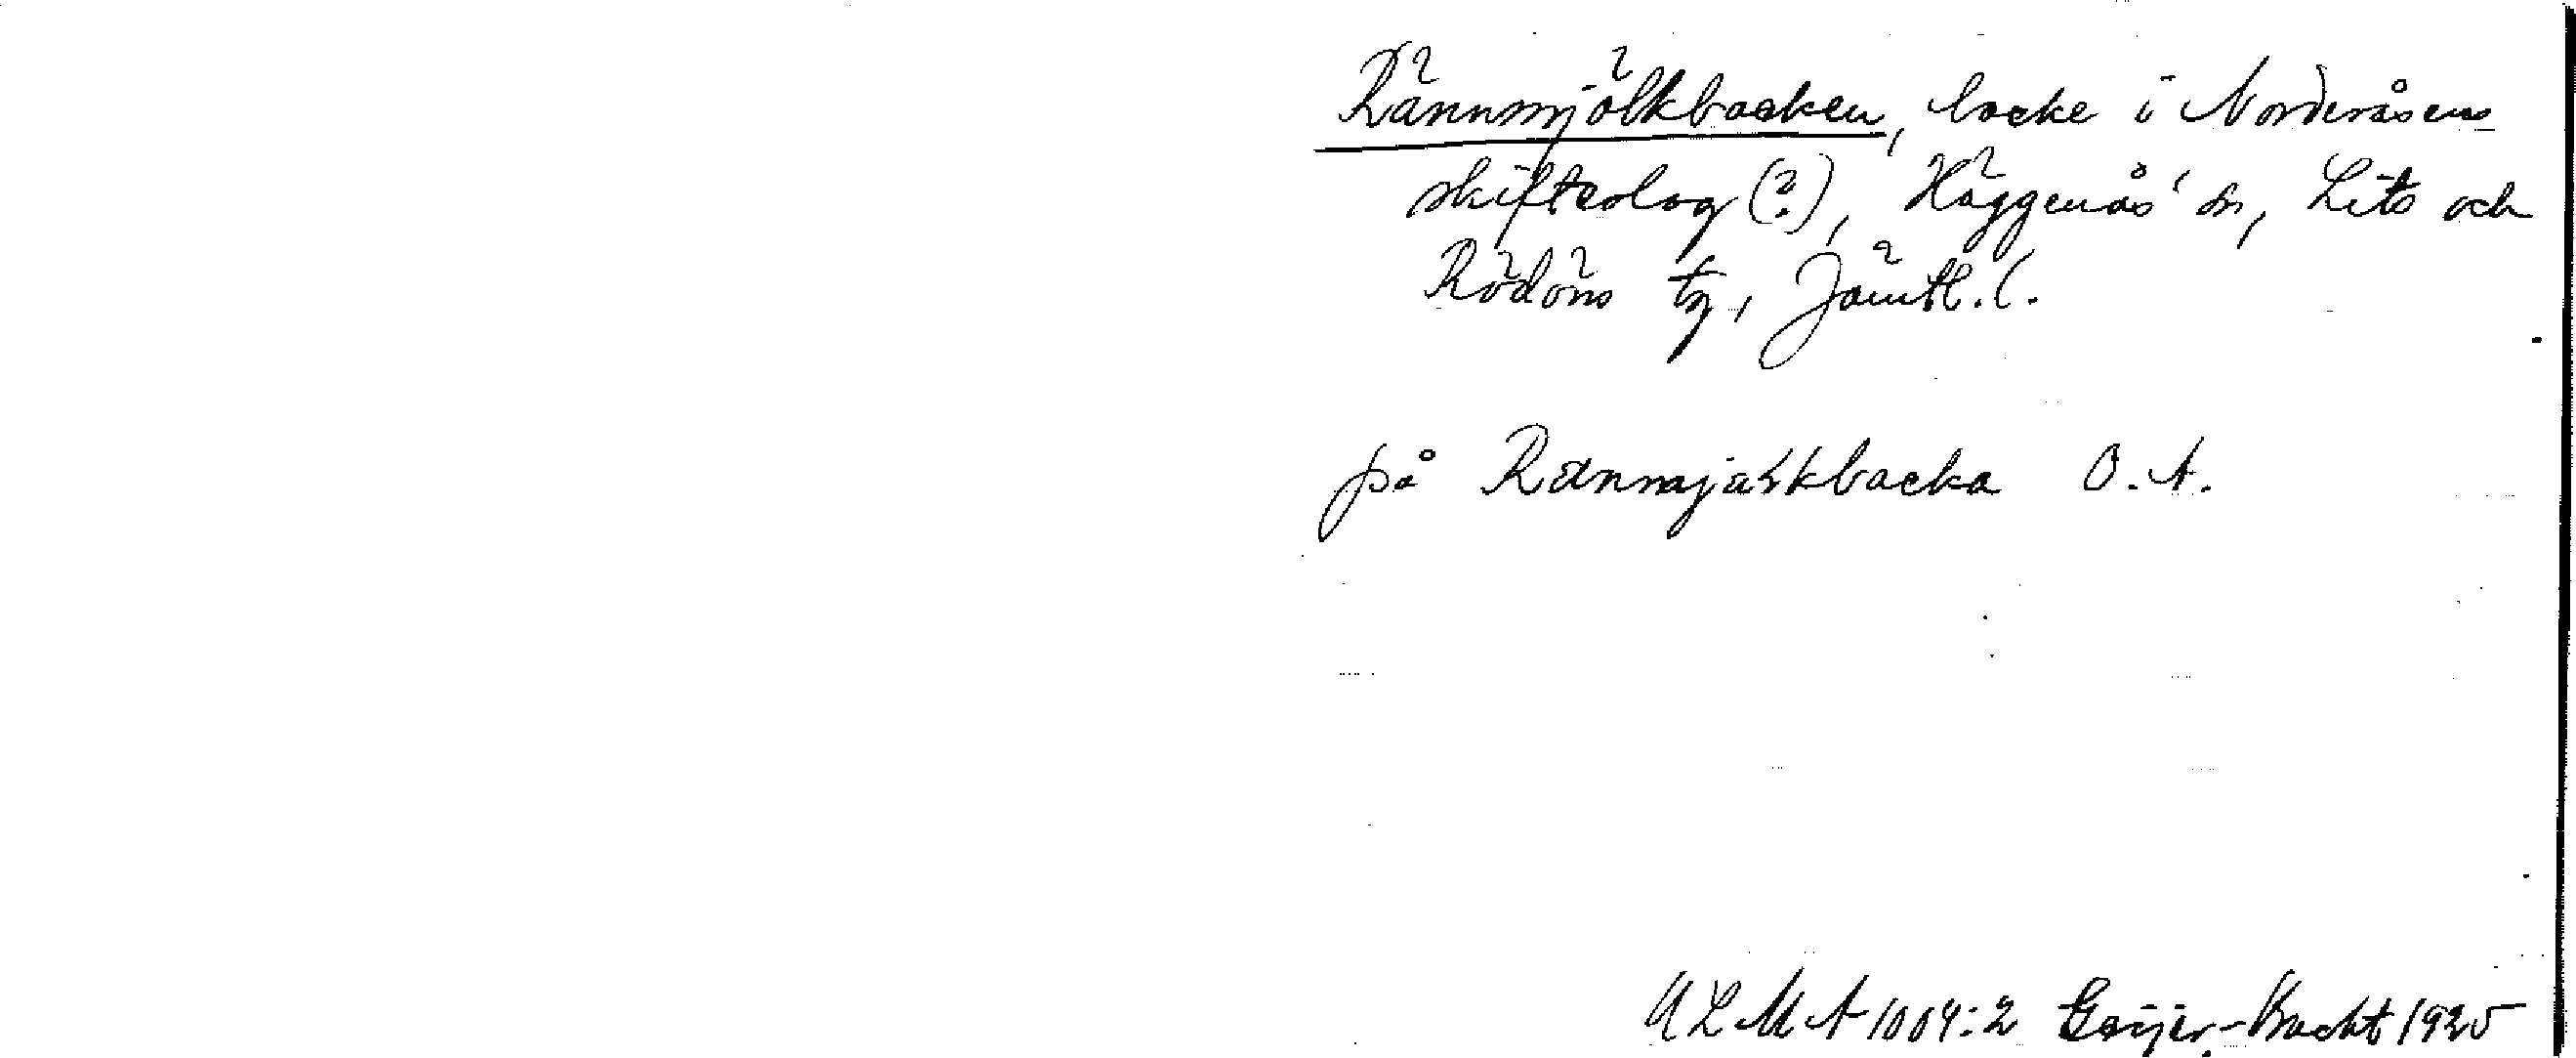 Rännmjölkbacken, backe i Norderåsens
skifteslag (?), Häggenås' sn, Lits och
Rödöns tg, Jämtl. l.
på Rännmjäłkbacka O. A.
ULMA 1004:2 Geijer-Bucht 1925